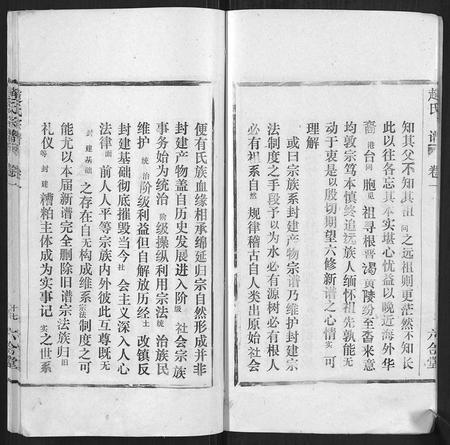 趙氏 譜 卷一
知其父不知其祖間之远祖则更茫然不知长
此以往各忘其本实堪心忧益以晚近海外华
裔港台同胞见祖寻根晋谒黄陵纷至沓来意
均敦宗笃本慎终追远族人缅怀祖先孰能无
动于衷是以殷切期望六修新谱之心情实可
理解
或曰宗族系封建产物宗谱乃彼维护封建宗
法制度之手段予以为水必有源树必有根人
必有祖系自然规律稽古自人类出原始社会
六合堂
便有氏族血缘相承绵延归宗自然形成并非
封建产物盖自历史发展进入阶级社会宗族
事务始为统治阶级操纵利用宗法统治族民
维护统治阶级利益但自解放历经土改镇反
封建基础彻底摧毁当今社会主义深入人心
法律面前人人平等宗族内外彼此互尊既无
封建基础之存在自无构成维系宗法制度之可
能尤以本届新谱完全删除旧谱宗法族归旧
礼仪等封建糟粕主体成为实事记实之世系
趙氏宗譜 卷一
六合堂